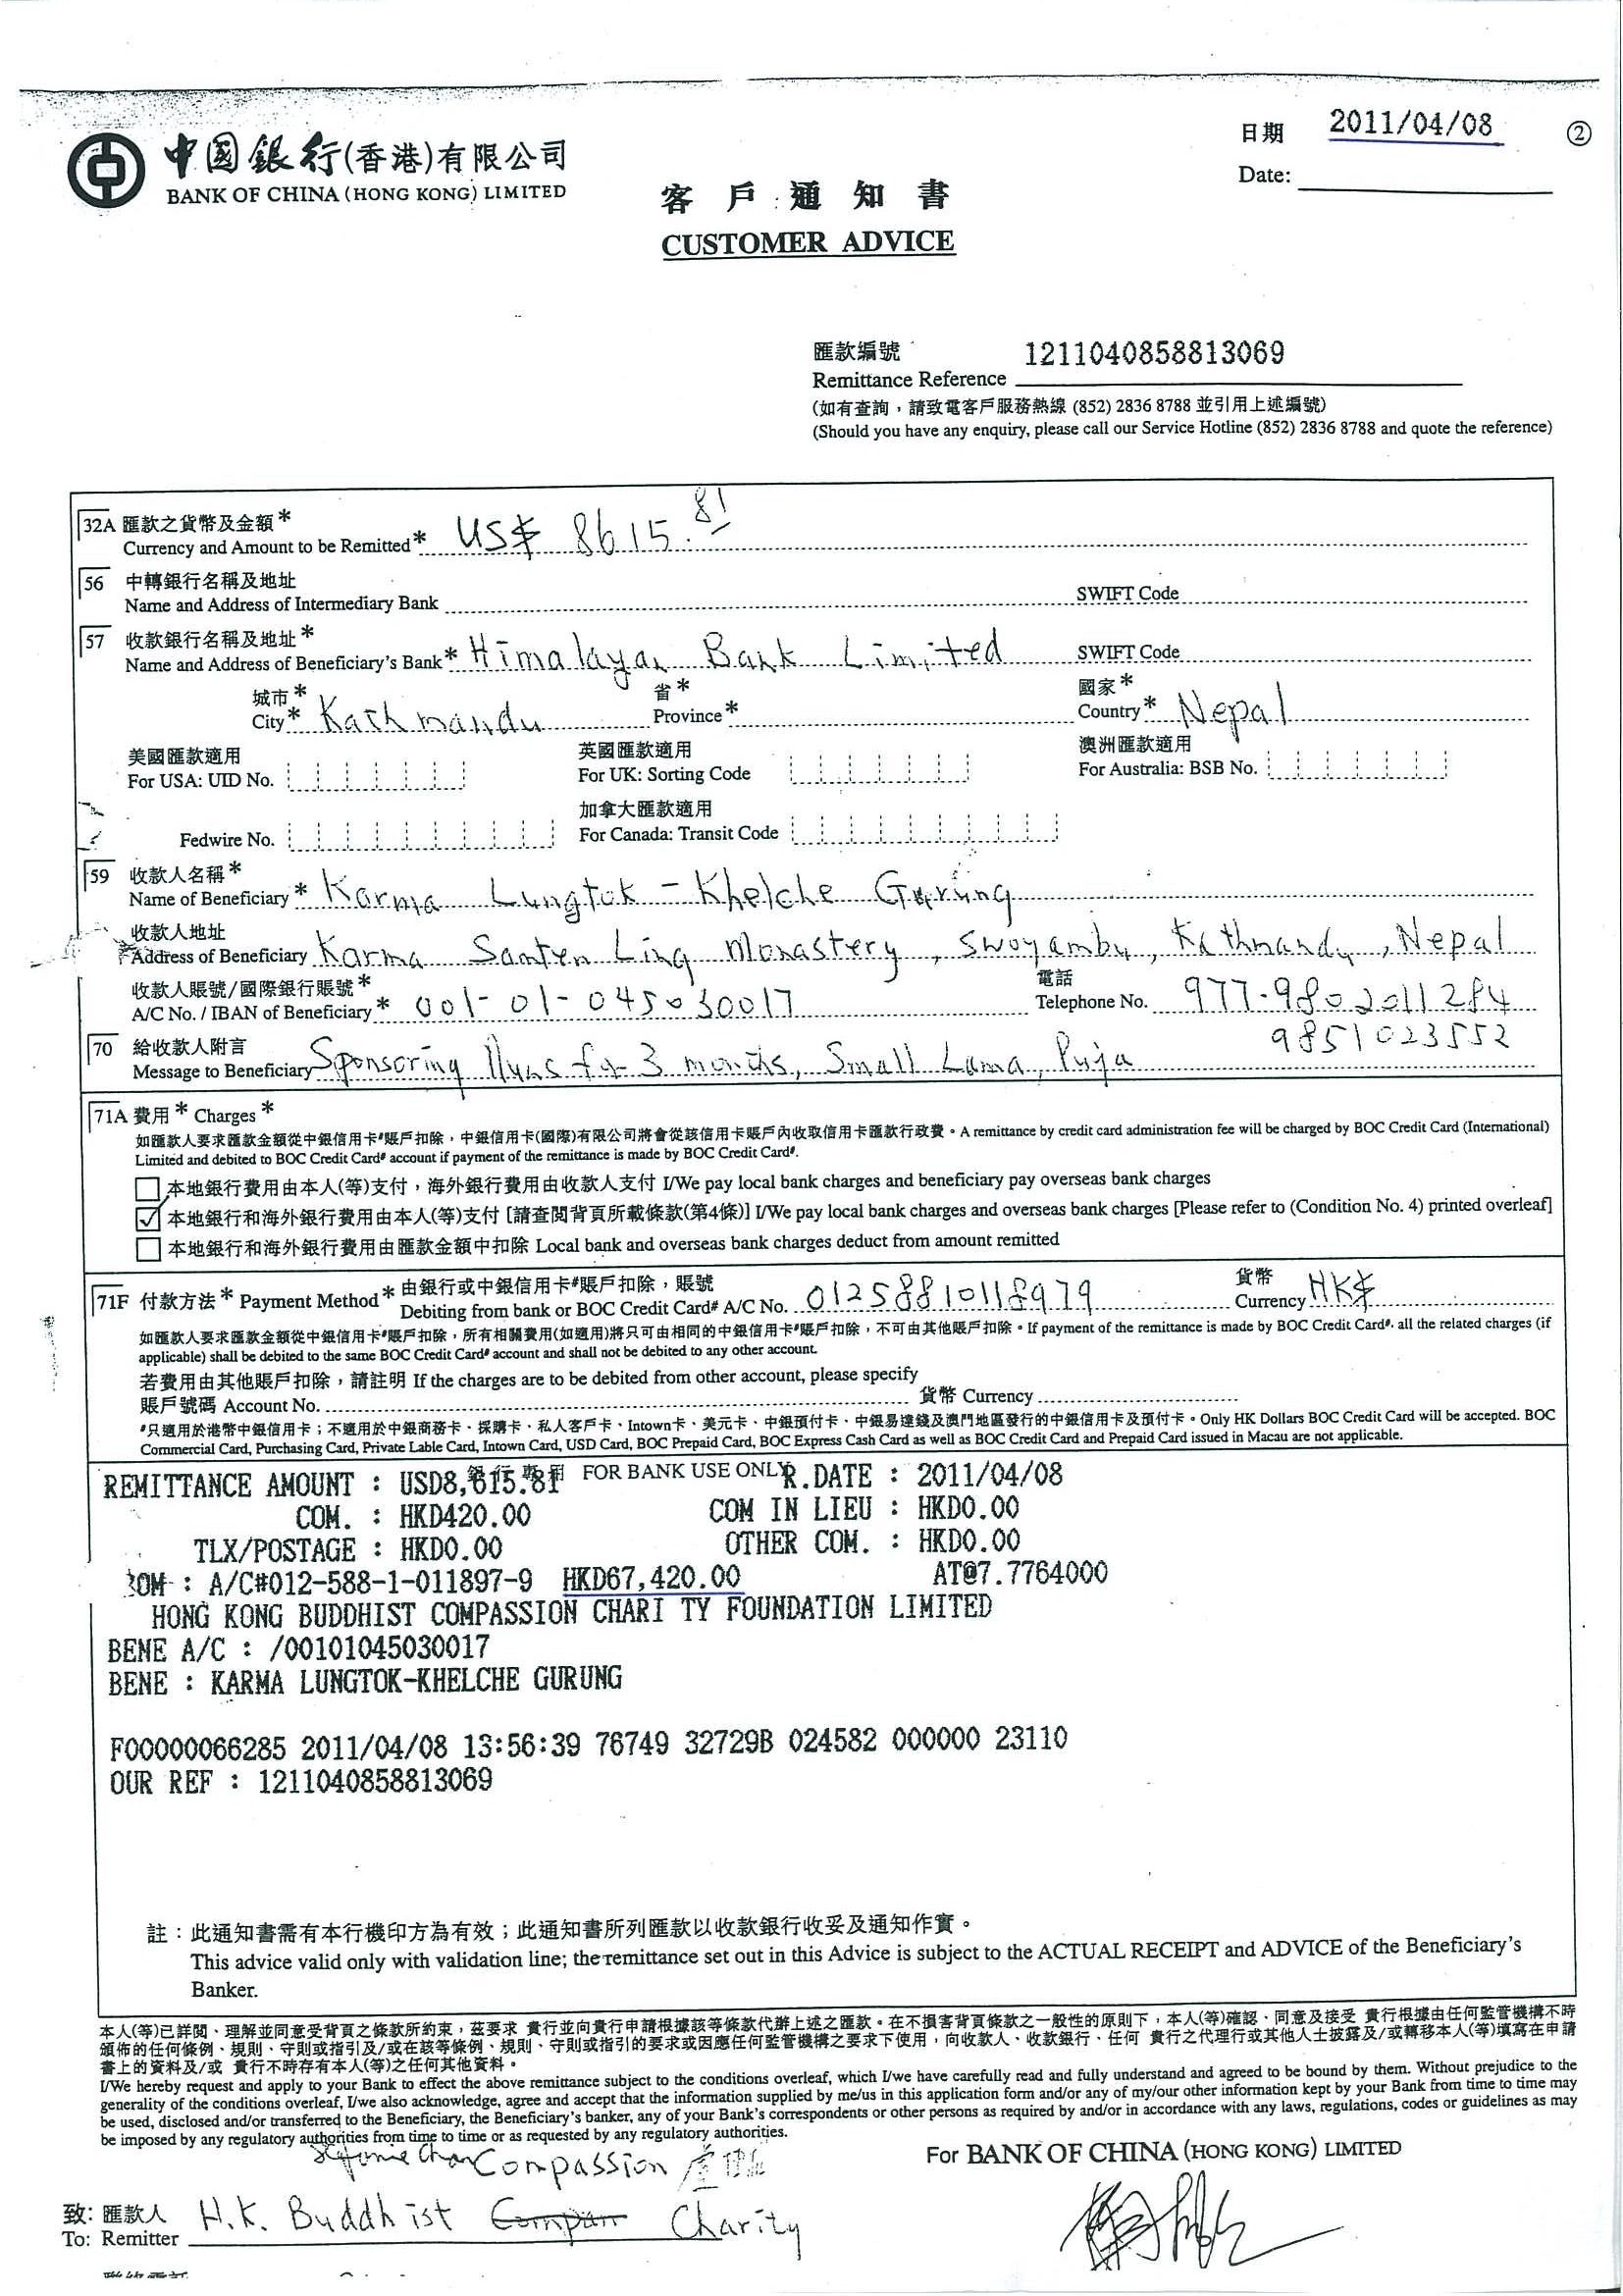 中國銀行(香港)有限公司
BANK OF CHINA (HONG KONG) LIMITED
日期 2011/04/08 ②
Date:
客戶通知書
CUSTOMER ADVICE
匯款編號 1211040858813069
Remittance Reference
(如有查詢，請致電客戶服務熱線 (852) 2836 8788 並引用上述編號)
(Should you have any enquiry, please call our Service Hotline (852) 2836 8788 and quote the reference)
32A 匯款之貨幣及金額*
Currency and Amount to be Remitted* US$ 8615.81
56 中轉銀行名稱及地址
Name and Address of Intermediary Bank SWIFT Code
57 收款銀行名稱及地址*
Name and Address of Beneficiary's Bank* Himalayan Bank Limited SWIFT Code
城市* 省* 國家*
City* Kathmandu Province* Country* Nepal
美國匯款適用 英國匯款適用 澳洲匯款適用
For USA: UID No. For UK: Sorting Code For Australia: BSB No.
加拿大匯款適用
Fedwire No. For Canada: Transit Code
59 收款人名稱*
Name of Beneficiary* Karma Lungtok - Khelche Gurung
收款人地址
Address of Beneficiary Karma Samten Ling Monastery, Swoyambu, Kathmandu, Nepal
收款人賬號/國際銀行賬號* 電話
A/C No. / IBAN of Beneficiary* 001-01-045030017 Telephone No. 977-9802011284
9851023552
70 給收款人附言
Message to Beneficiary Sponsoring Nuns for 3 months, Small Lama, Puja
71A 費用* Charges*
如匯款人要求匯款金額從中銀信用卡#賬戶扣除，中銀信用卡(國際)有限公司將會從該信用卡賬戶內收取信用卡匯款行政費。A remittance by credit card administration fee will be charged by BOC Credit Card (International)
Limited and debited to BOC Credit Card# account if payment of the remittance is made by BOC Credit Card#.
本地銀行費用由本人(等)支付，海外銀行費用由收款人支付 I/We pay local bank charges and beneficiary pay overseas bank charges
本地銀行和海外銀行費用由本人(等)支付 [請查閱背頁所載條款(第4條)] I/We pay local bank charges and overseas bank charges [Please refer to (Condition No. 4) printed overleaf]
本地銀行和海外銀行費用由匯款金額中扣除 Local bank and overseas bank charges deduct from amount remitted
71F 付款方法* Payment Method* 由銀行或中銀信用卡#賬戶扣除，賬號 貨幣
Debiting from bank or BOC Credit Card# A/C No. 01258810118979 Currency HK$
如匯款人要求匯款金額從中銀信用卡#賬戶扣除，所有相關費用(如適用)將只可由相同的中銀信用卡#賬戶扣除，不可由其他賬戶扣除。If payment of the remittance is made by BOC Credit Card#, all the related charges (if
applicable) shall be debited to the same BOC Credit Card# account and shall not be debited to any other account.
若費用由其他賬戶扣除，請註明 If the charges are to be debited from other account, please specify
賬戶號碼 Account No. 貨幣 Currency
#只適用於港幣中銀信用卡；不適用於中銀商務卡、採購卡、私人客戶卡、Intown卡、美元卡、中銀預付卡、中銀易達錢及澳門地區發行的中銀信用卡及預付卡。Only HK Dollars BOC Credit Card will be accepted. BOC
Commercial Card, Purchasing Card, Private Lable Card, Intown Card, USD Card, BOC Prepaid Card, BOC Express Cash Card as well as BOC Credit Card and Prepaid Card issued in Macau are not applicable.
銀行專用 FOR BANK USE ONLY
REMITTANCE AMOUNT : USD8,615.81 R.DATE : 2011/04/08
COM. : HKD420.00 COM IN LIEU : HKD0.00
TLX/POSTAGE : HKD0.00 OTHER COM. : HKD0.00
ROM : A/C#012-588-1-011897-9 HKD67,420.00 AT@7.7764000
HONG KONG BUDDHIST COMPASSION CHARI TY FOUNDATION LIMITED
BENE A/C : /00101045030017
BENE : KARMA LUNGTOK-KHELCHE GURUNG
F00000066285 2011/04/08 13:56:39 76749 32729B 024582 000000 23110
OUR REF : 1211040858813069
註：此通知書需有本行機印方為有效；此通知書所列匯款以收款銀行收妥及通知作實。
This advice valid only with validation line; the remittance set out in this Advice is subject to the ACTUAL RECEIPT and ADVICE of the Beneficiary's
Banker.
本人(等)已詳閱、理解並同意受背頁之條款所約束，茲要求 貴行並向貴行申請根據該等條款代辦上述之匯款。在不損害背頁條款之一般性的原則下，本人(等)確認、同意及接受 貴行根據由任何監管機構不時
頒佈的任何條例、規則、守則或指引及/或在該等條例、規則、守則或指引的要求或因應任何監管機構之要求下使用，向收款人、收款銀行、任何 貴行之代理行或其他人士披露及/或轉移本人(等)填寫在申請
書上的資料及/或 貴行不時存有本人(等)之任何其他資料。
I/We hereby request and apply to your Bank to effect the above remittance subject to the conditions overleaf, which I/we have carefully read and fully understand and agreed to be bound by them. Without prejudice to the
generality of the conditions overleaf, I/we also acknowledge, agree and accept that the information supplied by me/us in this application form and/or any of my/our other information kept by your Bank from time to time may
be used, disclosed and/or transferred to the Beneficiary, the Beneficiary's banker, any of your Bank's correspondents or other persons as required by and/or in accordance with any laws, regulations, codes or guidelines as may
be imposed by any regulatory authorities from time to time or as requested by any regulatory authorities.
For BANK OF CHINA (HONG KONG) LIMITED
Compassion
致: 匯款人 H.K. Buddhist Charity
To: Remitter